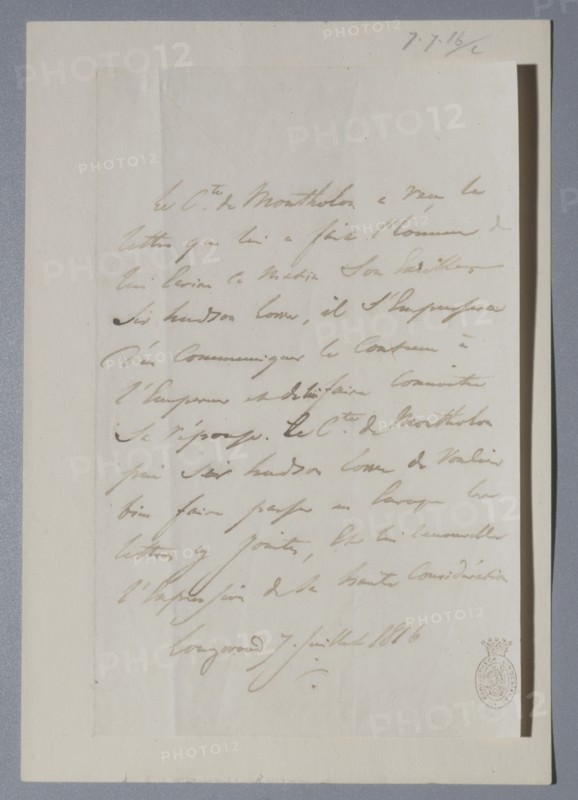 7.7.16/2
Le C.te de Montholon a reçu la
lettre que lui a fait l'honneur de
lui écrire ce matin Son Excellence
Sir hudson Lowe, il s'Empressera
D'en Communiquer le Contenu à
l'Empereur et de lui faire Connaitre
Sa réponse. Le C.te de Montholon
prie Sir hudson Lowe de Vouloir
bien faire passer en Europe les
lettres cy jointes, Et lui renouveller
l'Expression de la haute Considération
Longwood 7. Juillet 1816
PHOTO12